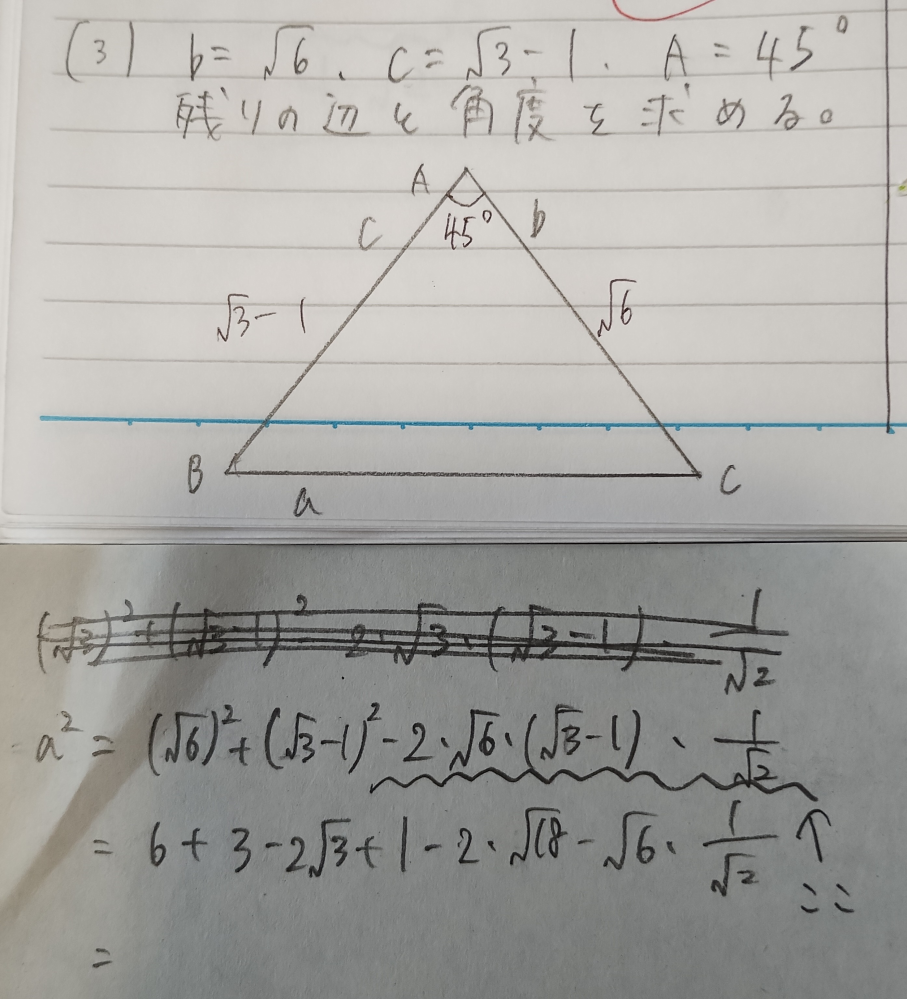 (3) b=√6、c=√3-1、A=45°
残りの辺と角度を求める。
A
c 45° b
√3-1 √6
B C
a
(√3)²+(√3-1)²-2・√3・(√3-1)・1/√2
a²=(√6)²+(√3-1)²-2・√6・(√3-1)・1/√2
=6+3-2√3+1-2・√18-√6・1/√2 ↑
ここ
=